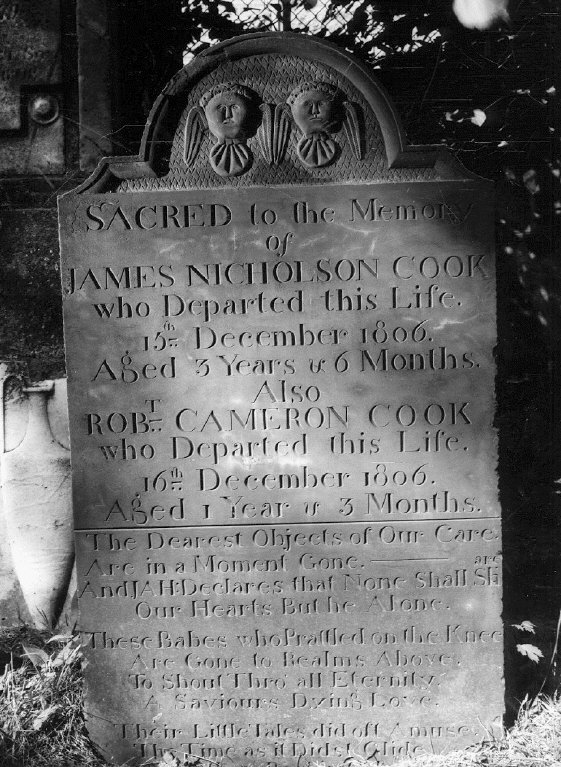 SACRED to the Memory
of
JAMES NICHOLSON COOK
who Departed this Life.
15th December 1806.
Aged 3 Years & 6 Months.
Also
ROBT. CAMERON COOK
who Departed this Life.
16th December 1806.
Aged 1 Year & 3 Months.
The Dearest Objects of Our Care.
Are in a Moment Gone.
And JAH Declares that None Shall Sh are
Our Hearts But he Alone.
These Babes who Prattled on the Knee
Are Gone to Realms Above.
To Shout Thro' all Eternity.
A Saviours Dying Love.
Their Little Tales did oft Amuse.
The Time as it Didst Glide